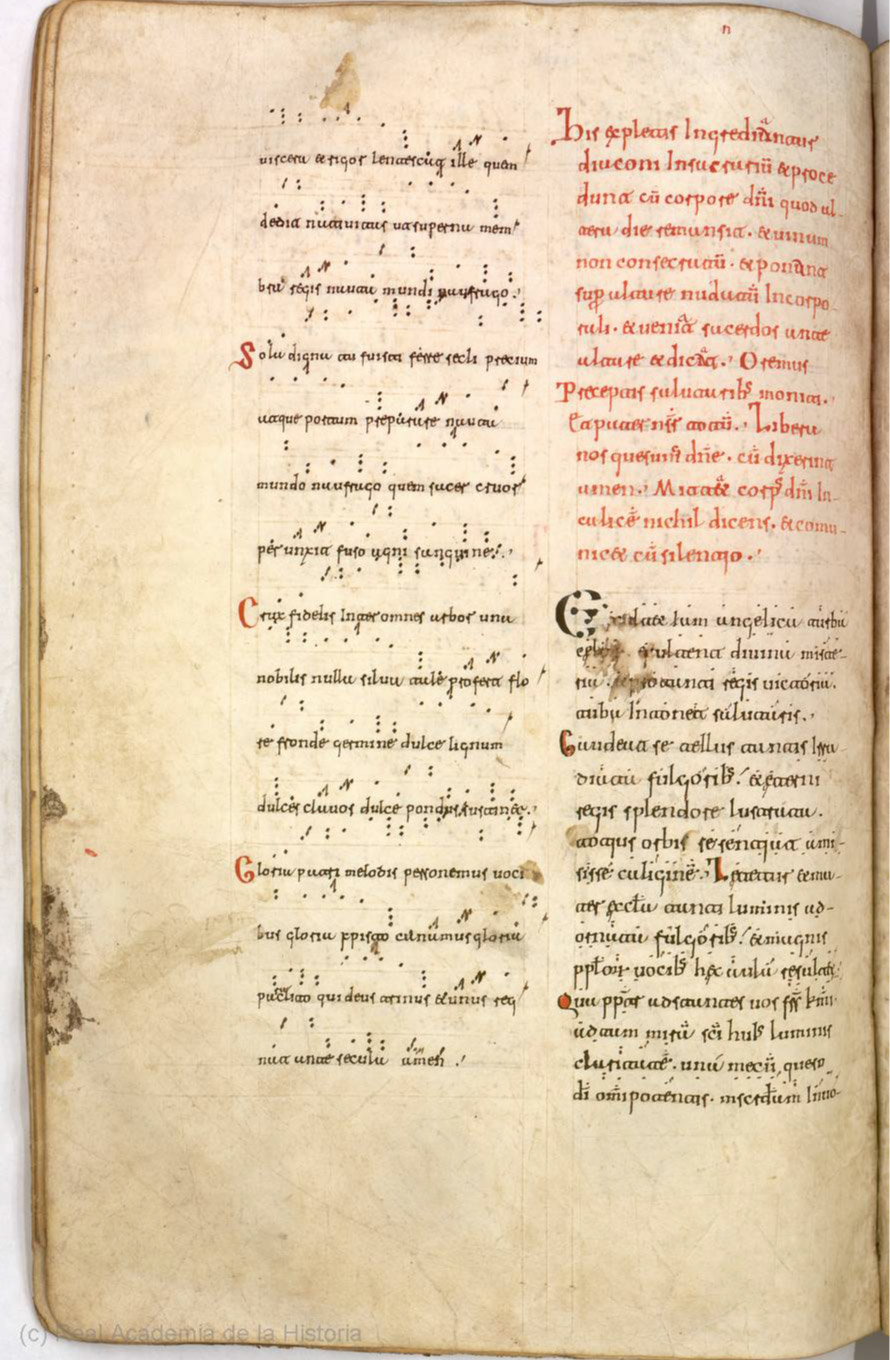 uiscera & rigor lentescatq ille quem
dedit natiuitas ut superni mem
bra regis nauta mundi naufrago.
Sola digna tu fuisti ferre secli precium
atque portum preparare nauta
mundo naufrago quem sacer cruor
perunxit fuso agni sanguine.
Crux fidelis Inter omnes arbor una
nobilis nulla silua tale profert flo
re fronde germine dulce lignum
dulces clauos dulce pondus sustinet.
Gloria patri melodis personemus uoci
bus gloria xpisto canamus gloria
paclito qui deus trinus & unus reg
nat ante secula amen.
n
His expletis Ingrediantur
diaconi In sacrariū & proce
dunt cū corpore dñi quod al-
tera die remansit. & uinum
non consecratū. & ponant
supr altare nudatū In corpo-
rali. & ueniat sacerdos ante
altare & dicat. Oremus
Preceptis salutarib moniti.
totū. Libera
nos quesums dñe. cū dixerint
amen. Mittat corps dñi In-
calice nichil dicens. & comu-
nicet cū silentio.
Exultet Iam angelica turba
exultent diuina miste-
ria. & pro tanti regis uictoria.
tuba Intonet salutaris.
Gaudeat se tellus tantis Irra-
diata fulgorib. & eterni
regis splendore lustrata.
totius orbis se sentiat ami-
sisse caliginē. Letetur & ma-
ter eccla tanti luminis ad-
ornata fulgorib. & magnis
pplor uocib hec aula resultet.
Qua ppter adstantes uos frs kmi
ad tam mirā sci huis luminis
claritatē. una mecū queso
di omipotentis. miscdam Inuo-
(c) Real Academia de la Historia